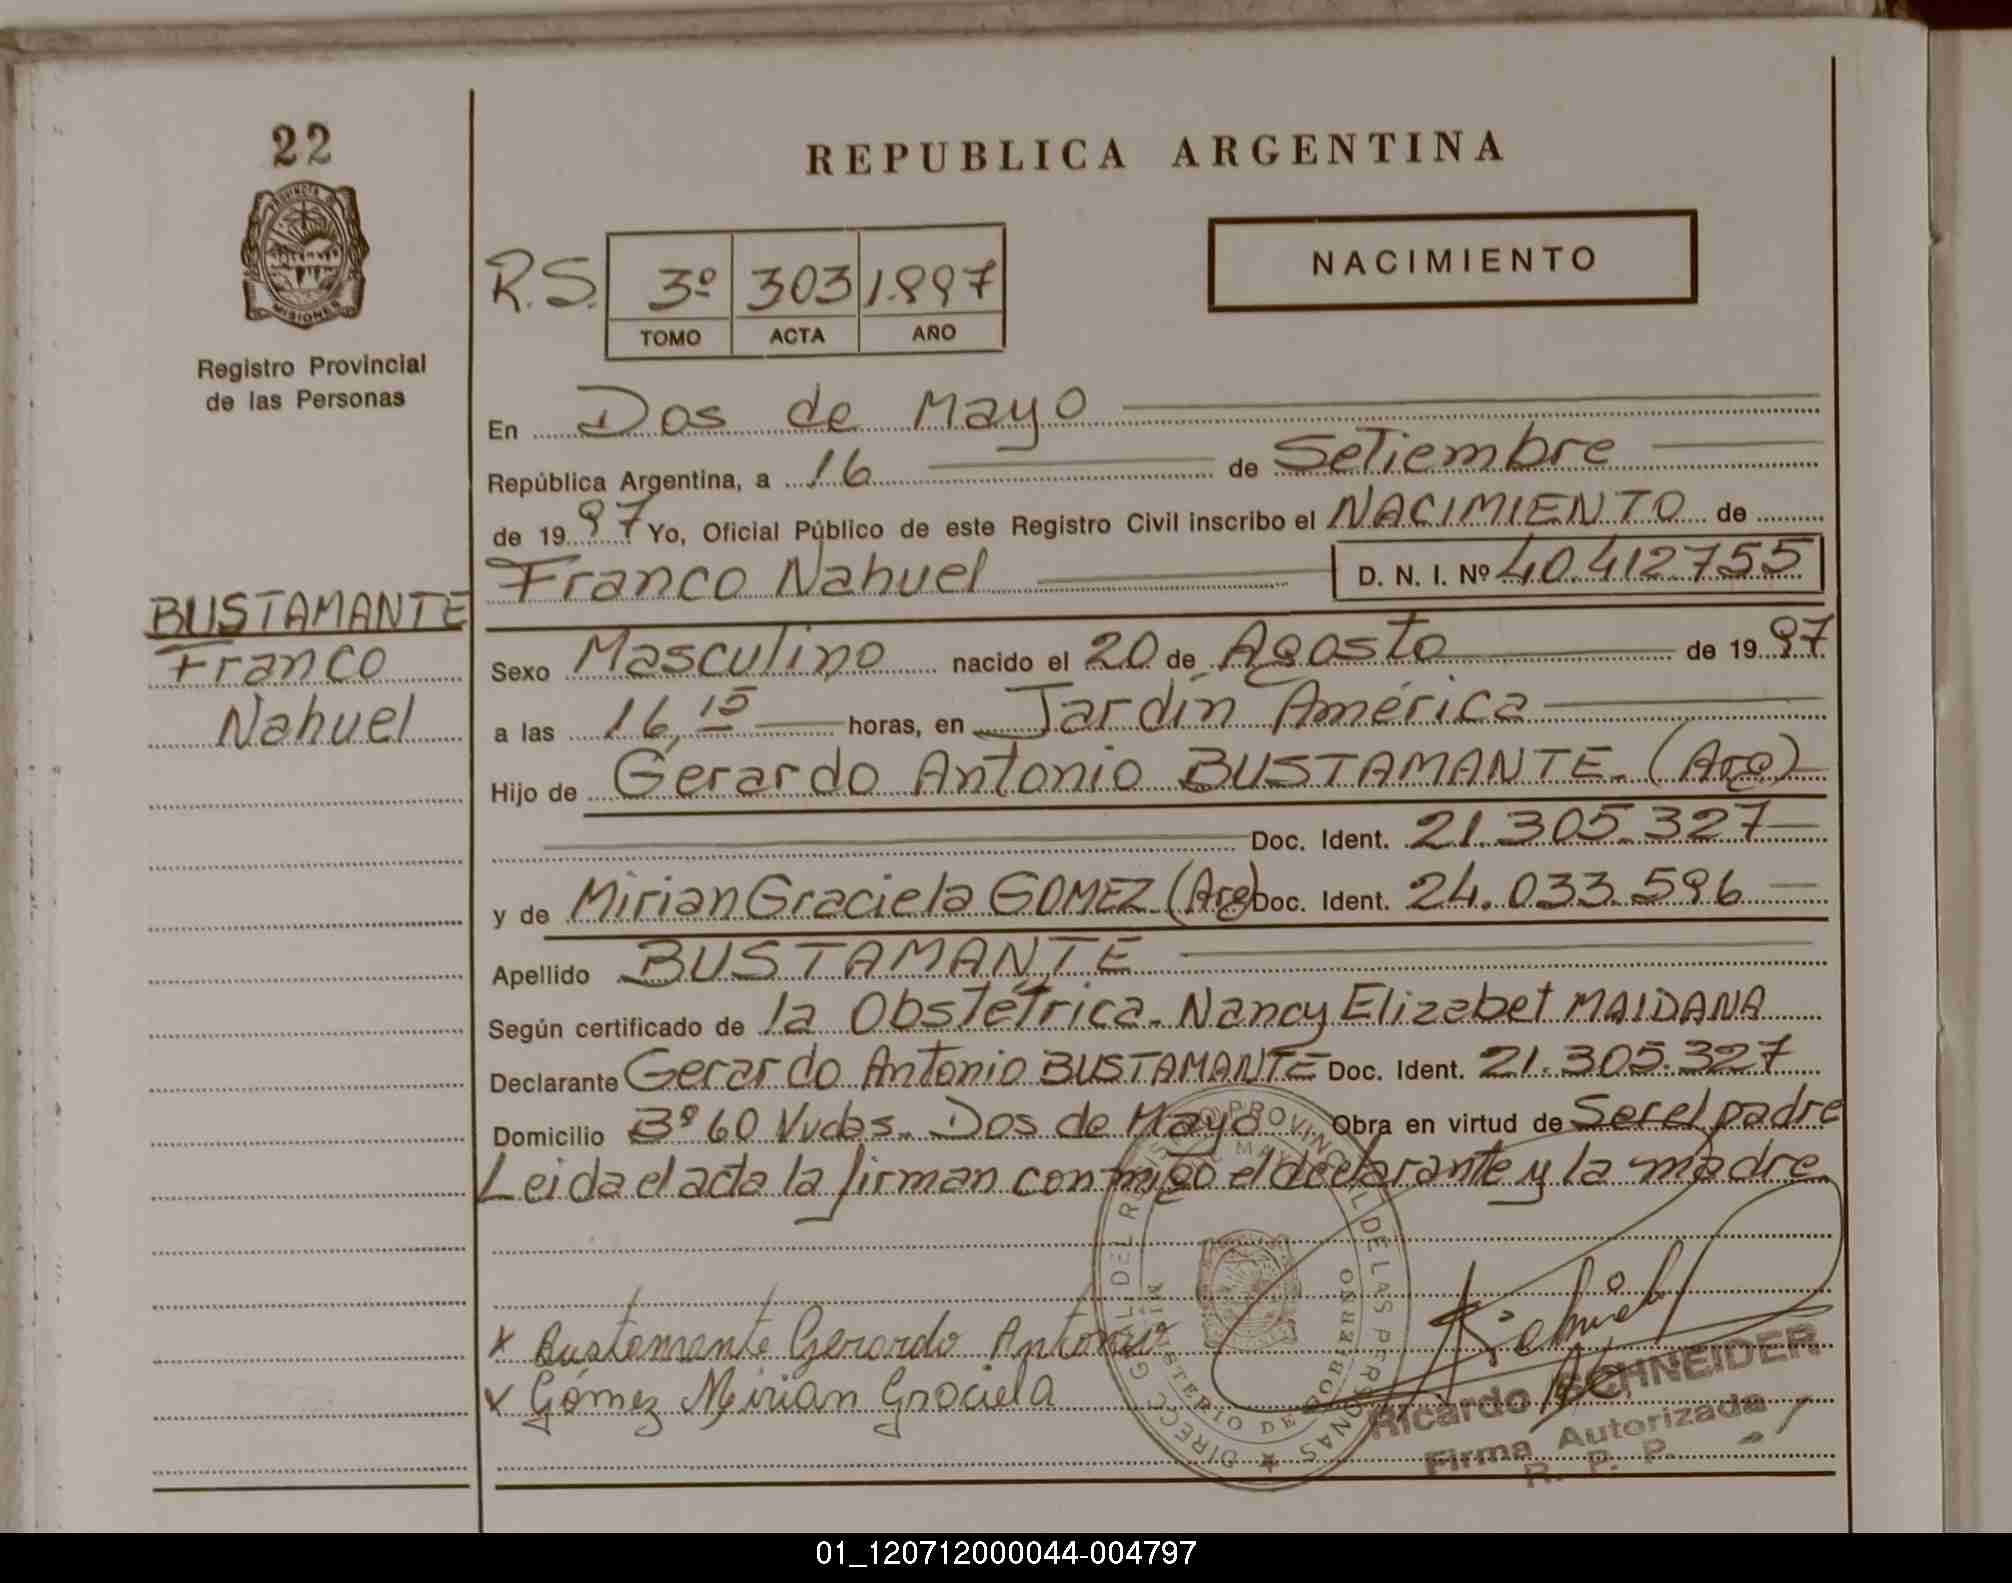 22
PROVINCIA DE
MISIONES
Registro Provincial
de las Personas
BUSTAMANTE
Franco
Nahuel
REPUBLICA ARGENTINA
R.S. 3º 303 1.997
TOMO ACTA AÑO
NACIMIENTO
En Dos de Mayo
República Argentina, a 16 de Setiembre
de 1997 Yo, Oficial Público de este Registro Civil inscribo el NACIMIENTO de
Franco Nahuel D. N. I. Nº 40.412.755
Sexo Masculino nacido el 20 de Agosto de 1997
a las 16,15 horas, en Jardín América
Hijo de Gerardo Antonio BUSTAMANTE. (Arg)
Doc. Ident. 21.305.327
y de Mirian Graciela GOMEZ (Arg) Doc. Ident. 24.033.596
Apellido BUSTAMANTE
Según certificado de la Obstétrica. Nancy Elizabet MAIDANA
Declarante Gerardo Antonio BUSTAMANTE Doc. Ident. 21.305.327
Domicilio Bº 60 Vvdas. Dos de Mayo Obra en virtud de Ser el padre
Leida el acta la firman conmigo el declarante y la madre.
x Bustamante Gerardo Antonio
x Gómez Mirian Graciela
Ricardo SCHNEIDER
Firma Autorizada
R. P. P.
01_120712000044-004797